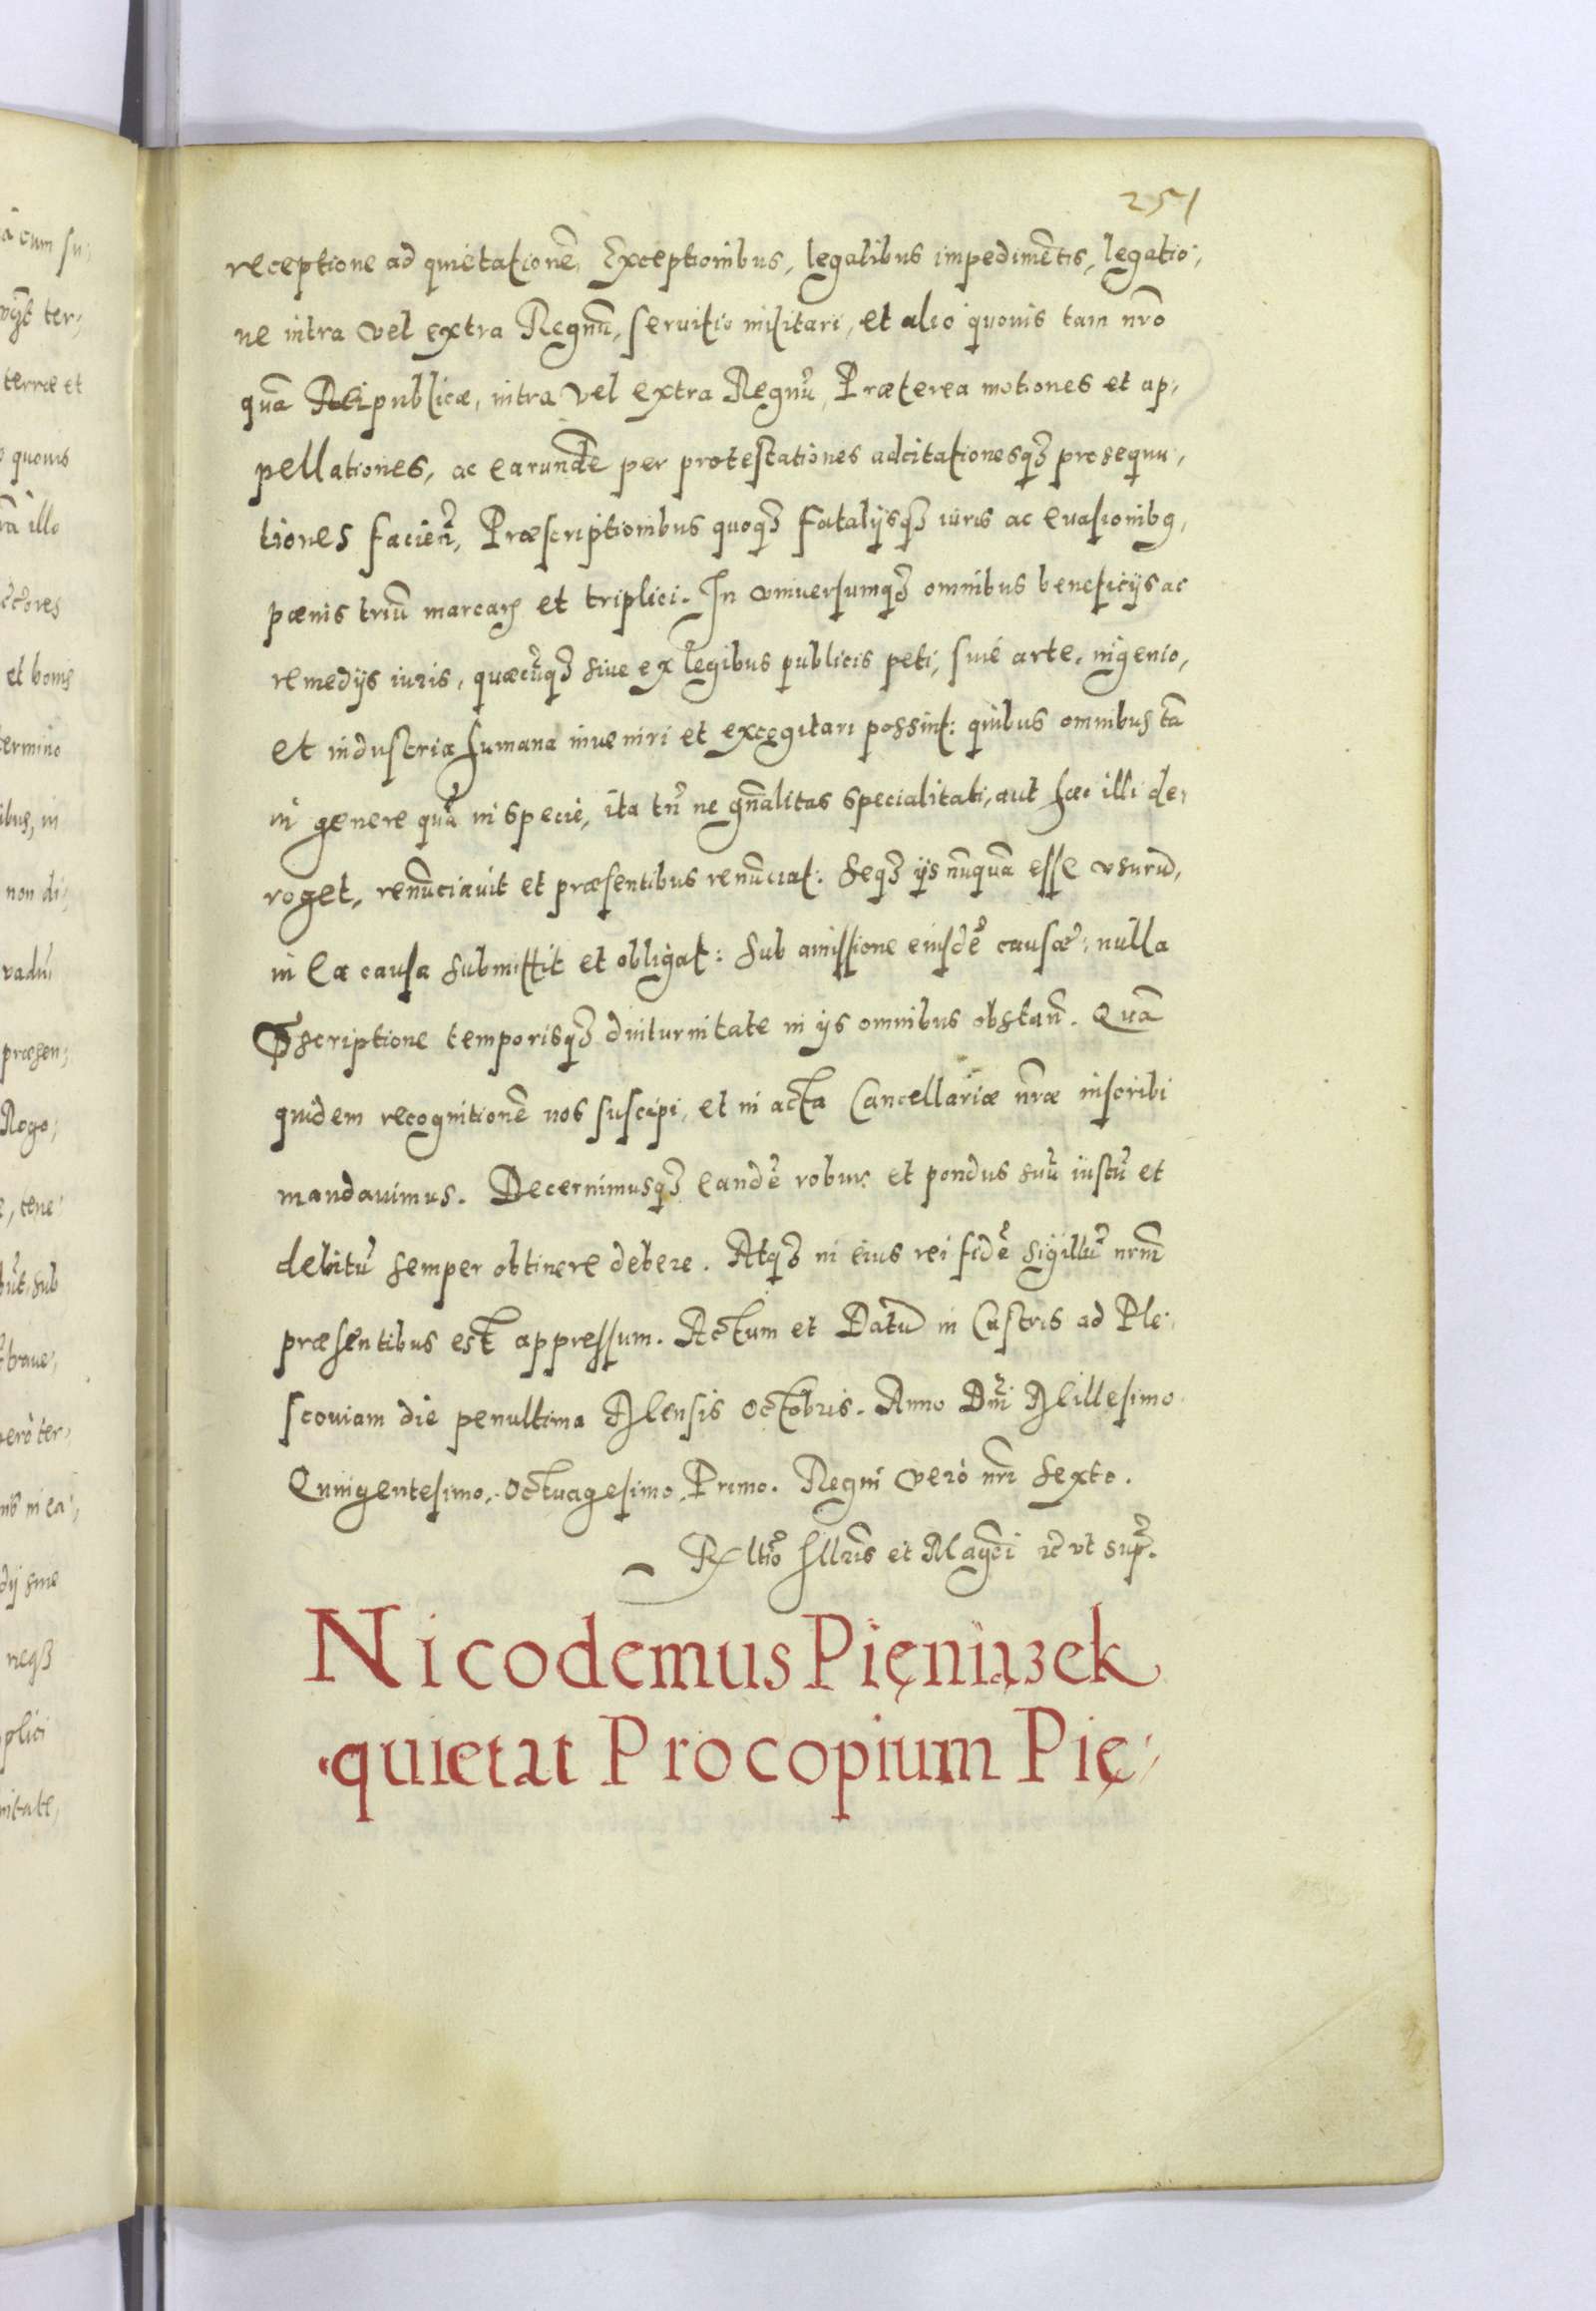 251
receptione ad quietationē, Exceptionibus, legalibus impedimētis, legatio,
ne intra vel extra Regnū, seruitio militari, et alio quouis tam nrō
quā Reipublicæ, intra vel extra Regnū, Præterea motiones et ap,
pellationes, ac earundē per protestationes adcitationesq3 prosequu,
tiones facien̄, Præscriptionibus quoq3 fatalijsq3 iuris ac euasionibꝯ,
pænis triū marcarꝫ et triplici. In vniuersumq3 omnibus beneficijs ac
remedijs iuris, quæcūq3 siue ex legibus publicis peti, siue arte, ingenio,
et industria humana inueniri et excogitari possint: quibus omnibus tā
in genere quā in specie, ita tn̄ ne gn̄alitas specialitati, aut hæc illi de,
roget, renūciauit et præsentibus renūciat: Seq3 ijs nūquā esse vsurū,
in ea causa submittit et obligat: sub amissione eiusdē causæ: nulla
Ꝓscriptione temporisq3 diuturnitate in ijs omnibus obstan̄. Quā
quidem recognitionē nos suscipi, et in acta Cancellariæ nræ inscribi
mandauimus. Decernimusq3 eandē robur et pondus suū iustū et
debitū semper obtinere debere. Atq3 in eius rei fidē sigillū nrm̄
præsentibus est appressum. Actum et Datū in Castris ad Ple,
scouiam die penultima Mensis Octobris. Anno Dn̄i Millesimo
Quingentesimo, Octuagesimo, Primo. Regni verò nrī Sexto.
Rltiō Illris et Magci ꝛc vt sup̄.
Nicodemus Pięniązek
quietat Procopium Pię,